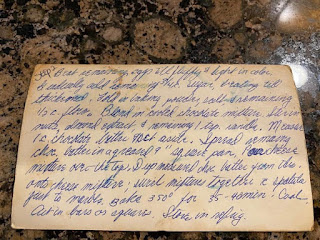 Beat remaining eggs till fluffy & light in color.
Gradually add remaining 3/4 c. sugar, beating till
thickened. Fold in baking powder, salt & remaining
1/2 c. flour. Blend in cooled chocolate mixture. Stir in
nuts, almond extract & remaining 1 tsp. vanilla. Measure
1 c. chocolate batter. Set aside. Spread remaining
choc. batter in a greased 9" square pan. Pour cheese
mixture over the top. Drop measured choc batter from tbs.
onto cheese mixture. Swirl mixtures together c spatula
just to marble. Bake 350° for 35-40 min. Cool.
Cut in bars or squares. Store in refrig.